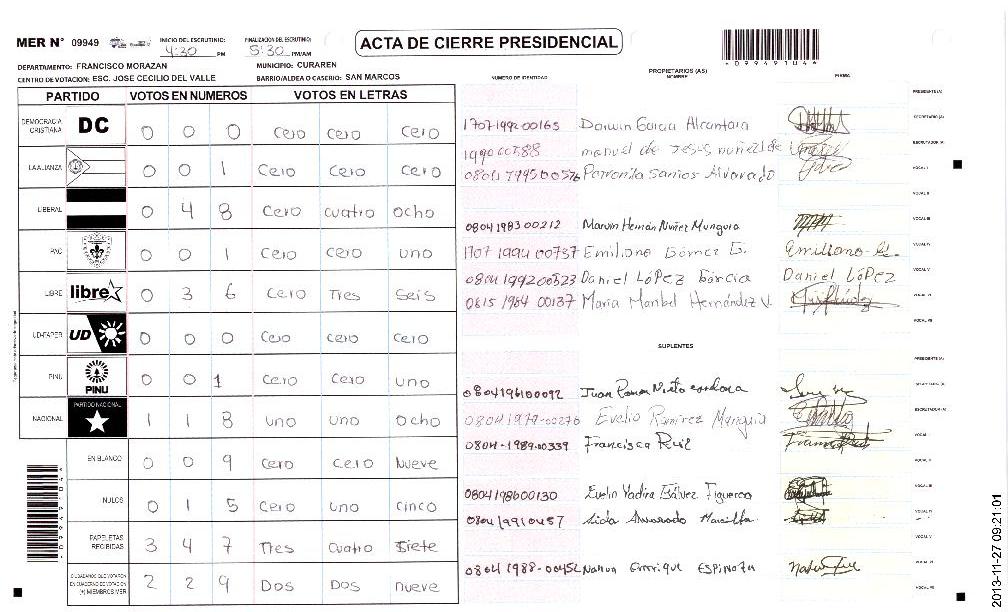 MER N° 09949 INICIO DEL ESCRUTINIO: 4:30 PM FINALIZACION DEL ESCRUTINIO: 5:30 PM/AM
ACTA DE CIERRE PRESIDENCIAL
DEPARTAMENTO: FRANCISCO MORAZAN MUNICIPIO: CURAREN
CENTRO DE VOTACION: ESC. JOSE CECILIO DEL VALLE BARRIO/ALDEA O CASERIO: SAN MARCOS
PARTIDO VOTOS EN NUMEROS VOTOS EN LETRAS
DEMOCRACIA CRISTIANA DC 0 0 0 Cero cero cero
LA ALIANZA 0 0 1 Cero Cero Cero
LIBERAL 0 4 8 Cero cuatro ocho
PAC 0 0 1 Cero Cero uno
LIBRE libre 0 3 6 Cero Tres Seis
UD-FAPER UD 0 0 0 Cero Cero Cero
PINU PINU 0 0 1 Cero Cero uno
NACIONAL PARTIDO NACIONAL 1 1 8 uno uno ocho
EN BLANCO 0 0 9 Cero Cero Nueve
NULOS 0 1 5 Cero uno cinco
PAPELETAS RECIBIDAS 3 4 7 Tres Cuatro Siete
CIUDADANOS QUE VOTARON EN CUADERNO DE VOTACION (+) MIEMBROS MER 2 2 9 Dos Dos nueve
NUMERO DE IDENTIDAD PROPIETARIOS (AS) NOMBRE FIRMA
PRESIDENTE(A)
1707199200165 Darwin Garcia Alcantara SECRETARIO (A)
manuel de Jesus nuñez ESCRUTADOR (A)
Petronila Santos Alvarado VOCAL I
VOCAL II
0804198300212 Marvin Hernán Nuñez Munguia VOCAL III
1707 1994 00737 Emiliano Gómez G. Emiliano G. VOCAL IV
0804199200523 Daniel López García Daniel López VOCAL V
0615 1984 00137 Maria Maribel Hernández V. VOCAL VI
VOCAL VII
SUPLENTES
PRESIDENTE(A)
0804196100092 Juan Nieto cardona SECRETARIO (A)
0804 1979-00276 Evelio Ramírez Munguia ESCRUTADOR (A)
0804-1989-00339 Francisca Ruiz VOCAL I
VOCAL II
0804198600130 Evelin Yadira Figueroa VOCAL III
Alvarado VOCAL IV
VOCAL V
0804 1988-00452 Nahun Enrique ESPINOZA VOCAL VI
VOCAL VII
2013-11-27 09:21:01